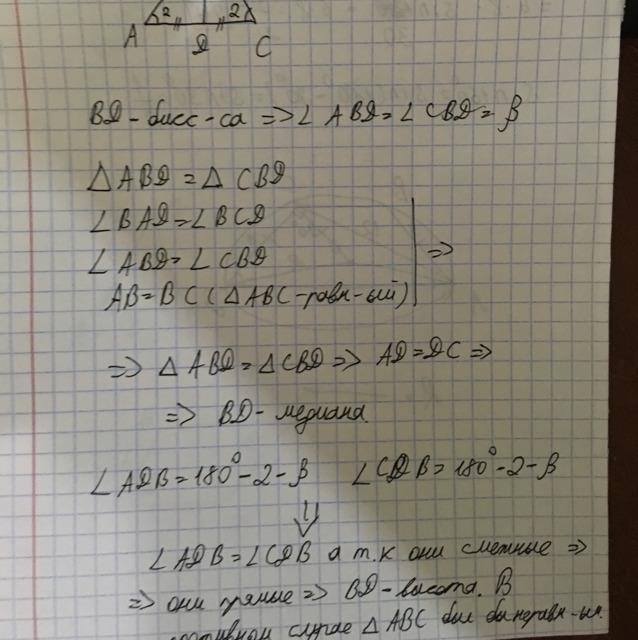 2 2
A D C
BD - бисс-са => ∠ ABD = ∠ CBD = β
△ ABD = △ CBD
∠ BAD = ∠ BCD
∠ ABD = ∠ CBD =>
AB = BC (△ ABC - равн-ый)
=> △ ABD = △ CBD => AD = DC =>
=> BD - медиана.
∠ ADB = 180° - 2 - β ∠ CDB = 180° - 2 - β
⇓
∠ ADB = ∠ CDB а т.к они смежные =>
=> они прямые => BD - высота. В
случае △ ABC был бы неравн-ым.